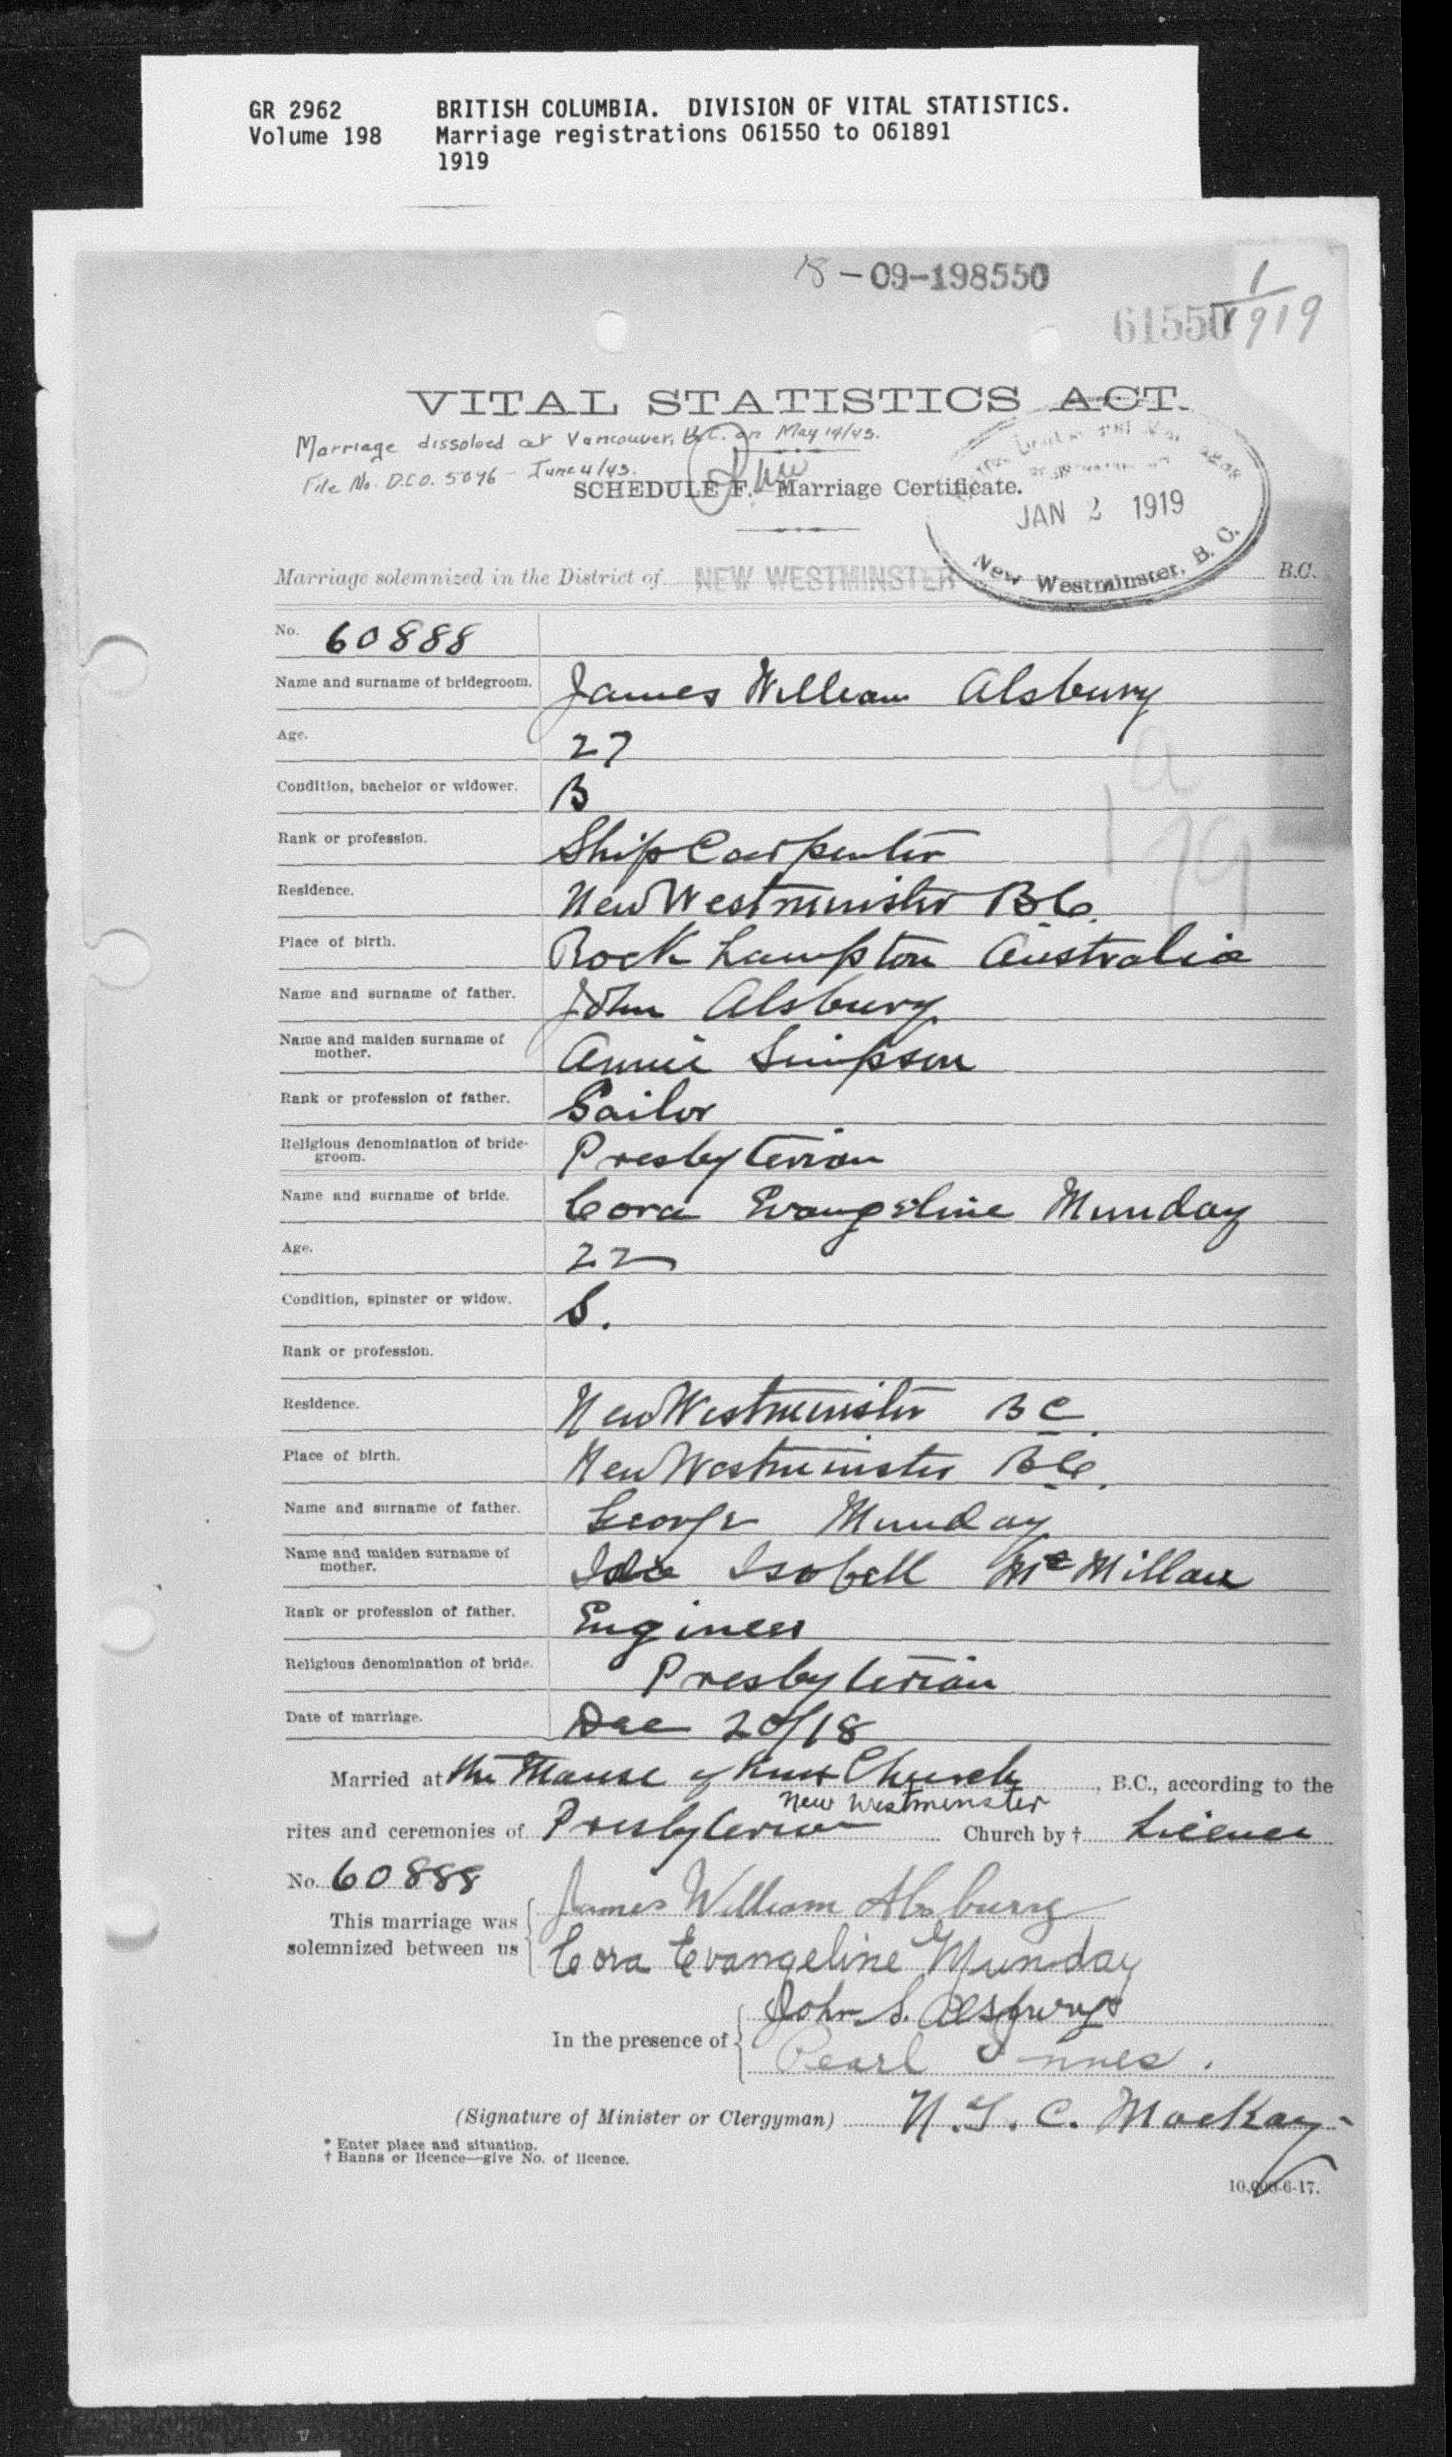 GR 2962 BRITISH COLUMBIA. DIVISION OF VITAL STATISTICS.
Volume 198 Marriage registrations 061550 to 061891
1919
18-09-198550
1
61550 1919
VITAL STATISTICS ACT.
Marriage dissolved at Vancouver, B.C. on May 14/43.
File No. D.C.O. 5096 - June 4/43.
SCHEDULE F. Marriage Certificate.
JAN 2 1919
New Westminster, B. C.
Marriage solemnized in the District of NEW WESTMINSTER B.C.
No. 60888
Name and surname of bridegroom. James William Alsbury
Age. 27
Condition, bachelor or widower. B
Rank or profession. Ship Carpenter
Residence. New Westminster BC
Place of birth. Rockhampton Australia
Name and surname of father. John Alsbury
Name and maiden surname of mother. Annie Simpson
Rank or profession of father. Sailor
Religious denomination of bridegroom. Presbyterian
Name and surname of bride. Cora Evangeline Munday
Age. 22
Condition, spinster or widow. S.
Rank or profession.
Residence. New Westminster BC.
Place of birth. New Westminster BC.
Name and surname of father. George Munday
Name and maiden surname of mother. Ida Isobell McMillan
Rank or profession of father. Engineer
Religious denomination of bride. Presbyterian
Date of marriage. Dec 20/18
Married at the Manse of Knox Church, B.C., according to the
New Westminster
rites and ceremonies of Presbyterian Church by † Licence
No. 60888
This marriage was solemnized between us James William Alsbury
Cora Evangeline Munday
In the presence of John S. Alsbury
Pearl Innes.
(Signature of Minister or Clergyman) N. G. C. MacKay
* Enter place and situation.
† Banns or licence—give No. of licence.
10,000-6-17.